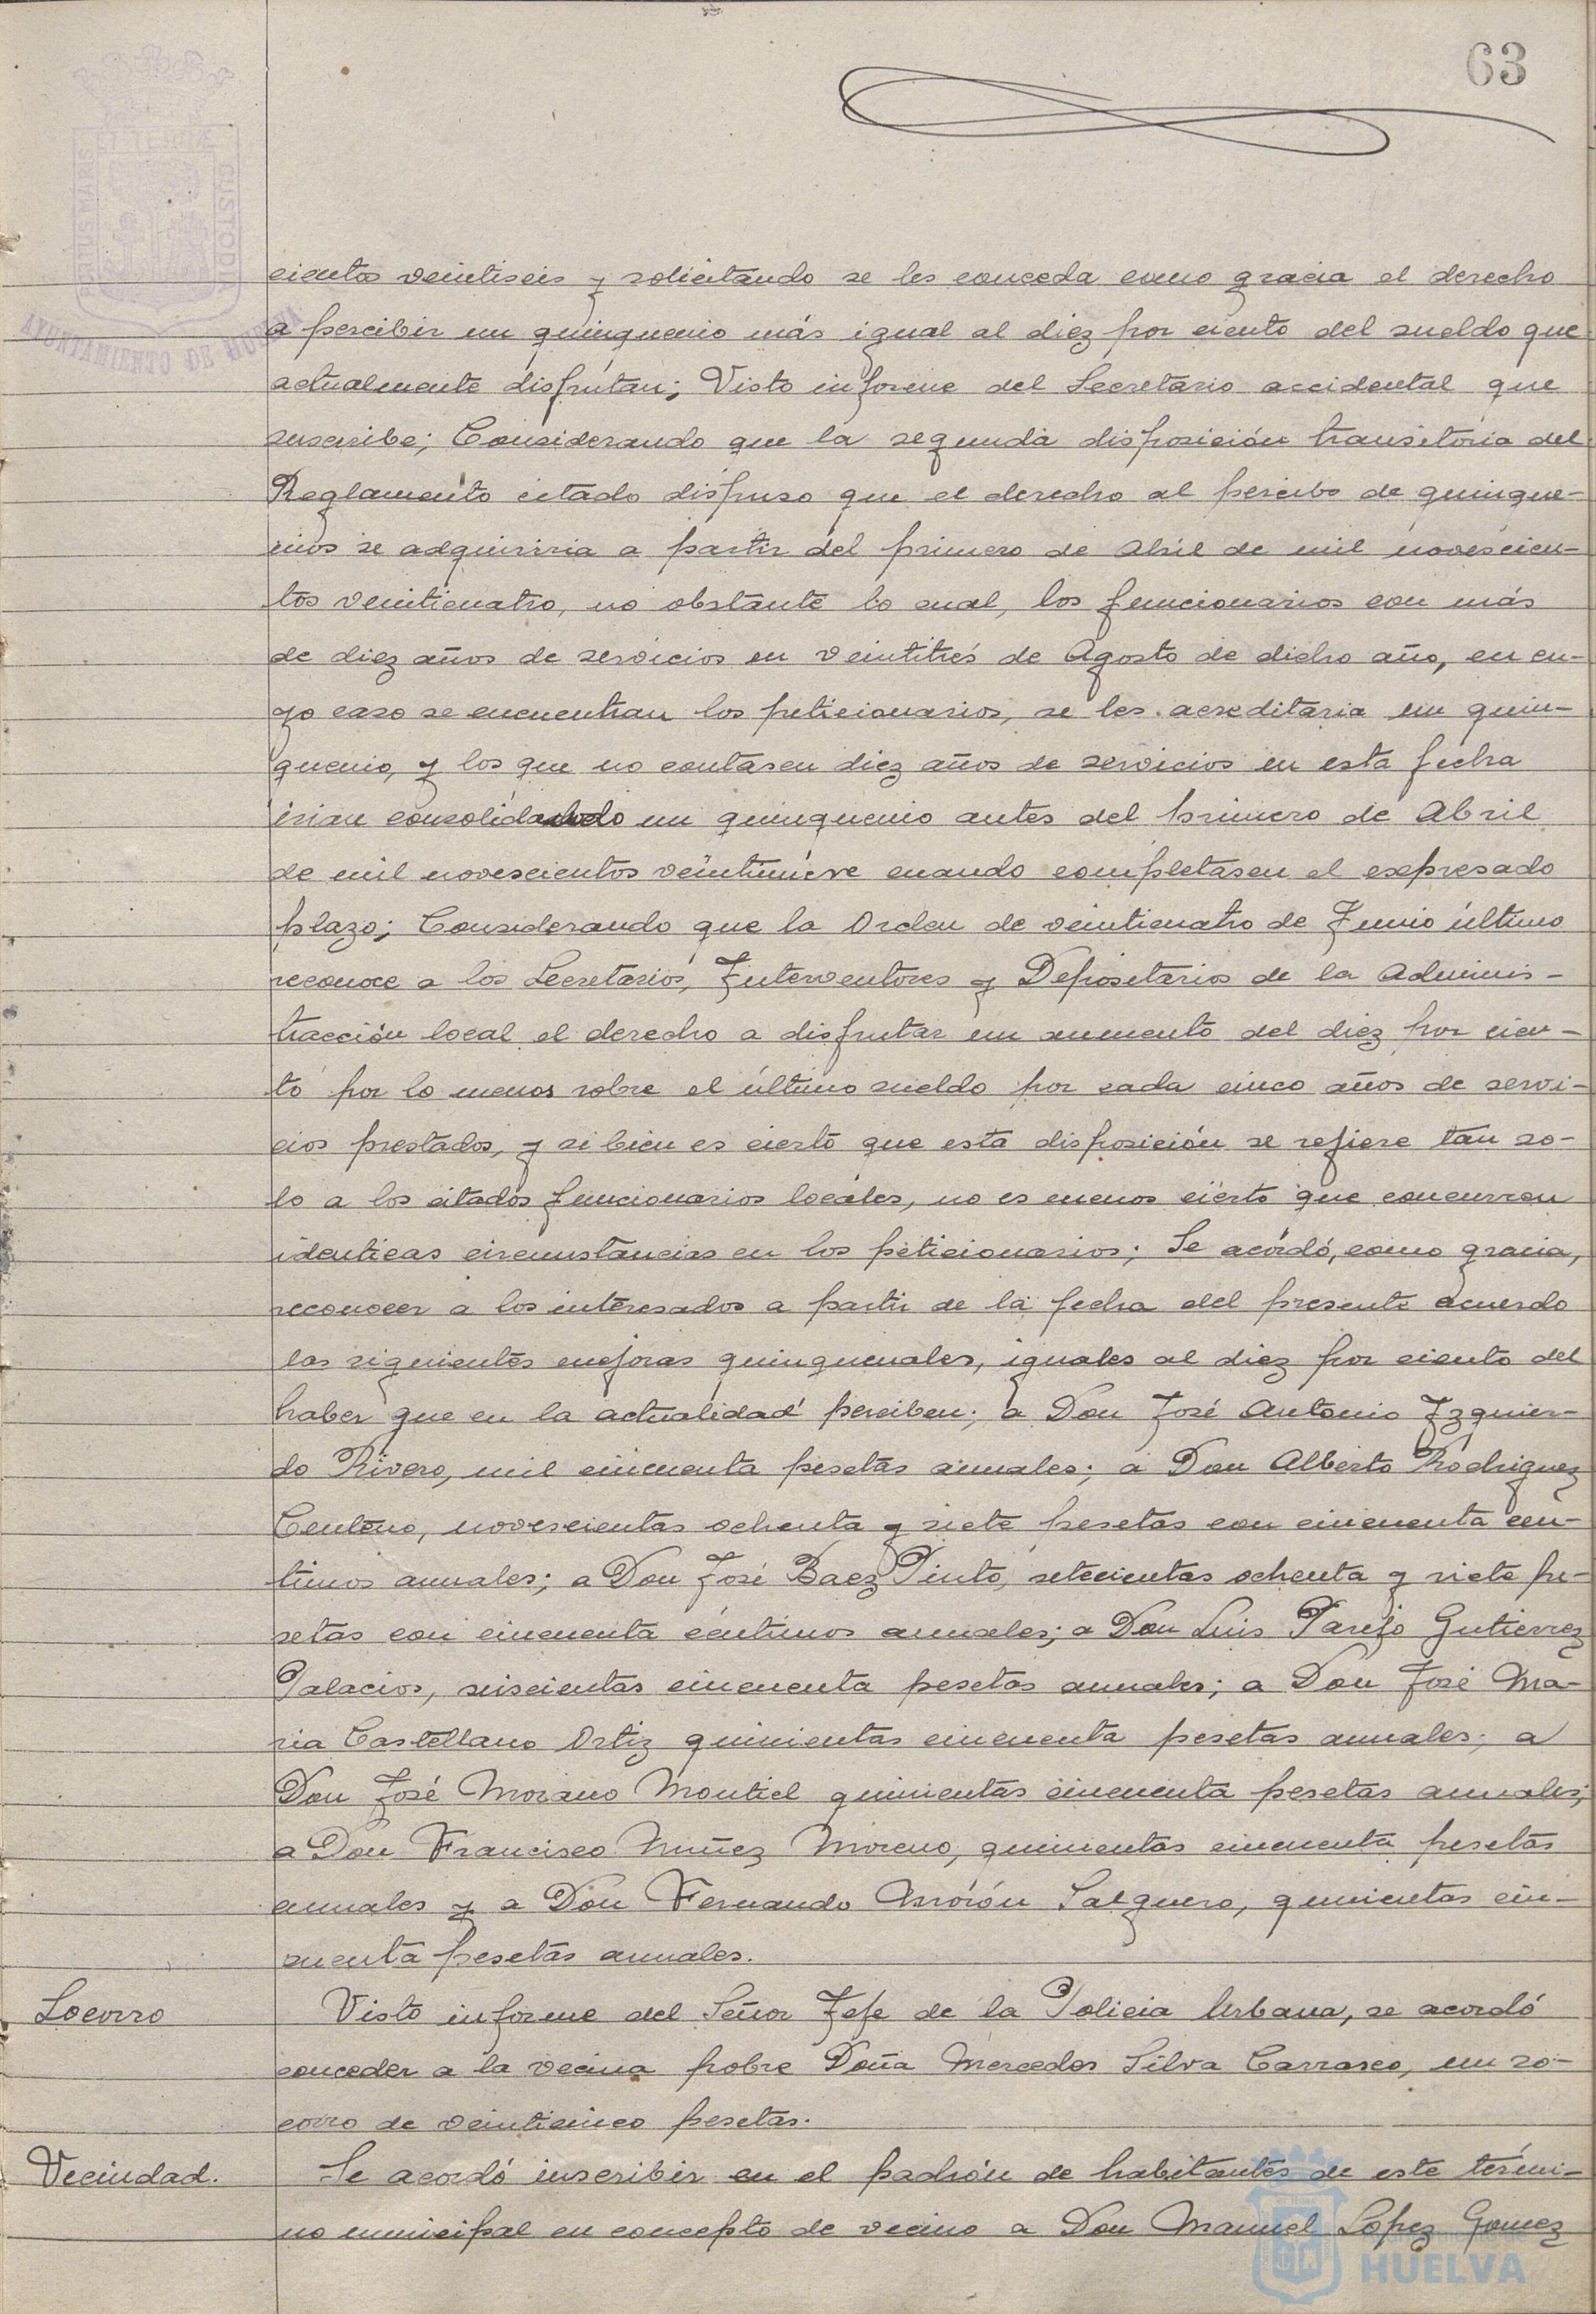 63
PORTUS MARIS ET TERRAE CUSTODIA
AYUNTAMIENTO DE HUELVA
cientos veintiseis y solicitando se les conceda como gracia el derecho
a percibir un quinquenio más igual al diez por ciento del sueldo que
actualmente disfrutan; Visto informe del Secretario accidental que
suscribe; Considerando que la segunda disposición transitoria del
Reglamento citado dispuso que el derecho al percibo de quinque-
nios se adquiriria a partir del primero de Abril de mil novescien-
tos veinticuatro, no obstante lo cual, los funcionarios con más
de diez años de servicios en veintitrés de Agosto de dicho año, en cu-
yo caso se encuentran los peticionarios, se les acreditaria un quin-
quenio, y los que no contasen diez años de servicios en esta fecha
irian consolidando un quinquenio antes del primero de Abril
de mil novescientos veintinueve cuando completasen el expresado
plazo; Considerando que la Orden de veinticuatro de Junio último
reconoce a los Secretarios, Interventores y Depositarios de la Adminis-
tracción local el derecho a disfrutar un aumento del diez por cien-
to por lo menos sobre el último sueldo por cada cinco años de servi-
cios prestados, y si bien es cierto que esta disposición se refiere tan so-
lo a los citados funcionarios locales, no es menos cierto que concurren
identicas circunstancias en los peticionarios; Se acordó, como gracia,
reconocer a los interesados a partir de la fecha del presente acuerdo
las siguientes mejoras quinquenales, iguales al diez por ciento del
haber que en la actualidad perciben; a Don José Antonio Izquier-
do Rivero, mil cincuenta pesetas anuales; a Don Alberto Rodriguez
Centeno, novescientas ochenta y siete pesetas con cincuenta cén-
timos anuales; a Don José Baez Pinto, setecientas ochenta y siete pe-
setas con cincuenta céntimos anuales; a Don Luis Parejo Gutierrez
Palacios, seiscientas cincuenta pesetas anuales; a Don José Ma-
ria Castellano Ortiz quinientas cincuenta pesetas anuales; a
Don José Morano Montiel quinientas cincuenta pesetas anuales;
a Don Francisco Nuñez Moreno, quinientas cincuenta pesetas
anuales y a Don Fernando Salguero, quinientas cin-
cuenta pesetas anuales.
Socorro
Visto informe del Señor Jefe de la Policia Urbana, se acordó
conceder a la vecina pobre Doña Mercedes Silva Carrasco, un so-
corro de veinticinco pesetas.
Vecindad.
Se acordó inscribir en el padrón de habitantes de este térmi-
no municipal en concepto de vecino a Don Manuel López Gomez
HUELVA